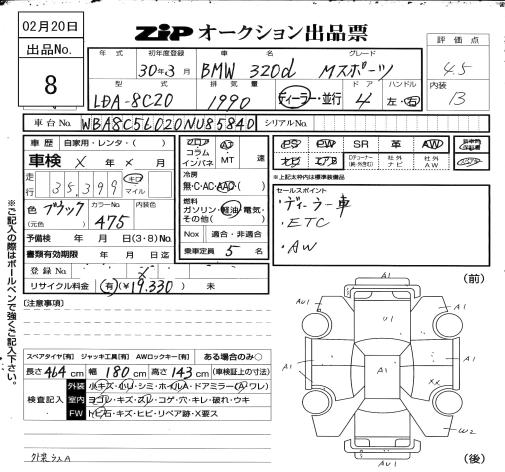 02月20日
ZiP オークション出品票
出品No.
8
年式 初年度登録 車名 グレード
30年3月 BMW 320d Mスポーツ
評価点
4.5
型式 排気量 ドア ハンドル
LDA-8C20 1990 ディーラー・並行 4 左・右
内装
13
車台No. WBA8C56020NU85840 シリアルNo.
車歴 自家用・レンタ・( )
車検 × 年 × 月
走行 35,399 キロ マイル
色 ブラック (元色) カラーNo. 475 内装色
予備検 年 月 日(3・8)No.
書類有効期限 年 月 日迄
登録No.
リサイクル料金 有(¥19,330) 未
フロア コラム インパネ AT MT 速
冷房
無・C・AC・AAC
燃料
ガソリン・軽油・電気・その他( )
Nox 適合・非適合
乗車定員 5 名
PS PW SR 革 AW
ナビ エアB 社外ナビ 社外AW
※上記太枠内は標準装備品
セールスポイント
・ディーラー車
・ETC
・AW
※ご記入の際はボールペンで強くご記入下さい。
[注意事項]
スペアタイヤ[有] ジャッキ工具[有] AWロックキー[有] ある場合のみ○
長さ 464 cm 幅 180 cm 高さ 143 cm (車検証上の寸法)
検査記入
外装 小キズ・小U・シミ・ホイルA・ドアミラー(A・ワレ)
室内 ヨゴレ・キズ・スレ・コゲ・穴・キレ・破れ・ウキ
FW トビ石・キズ・ヒビ・リペア跡・X要ス
(前)
A1
AU1
U1
A1
A1
A1
A1
XX
W2
AU1
A1
(後)